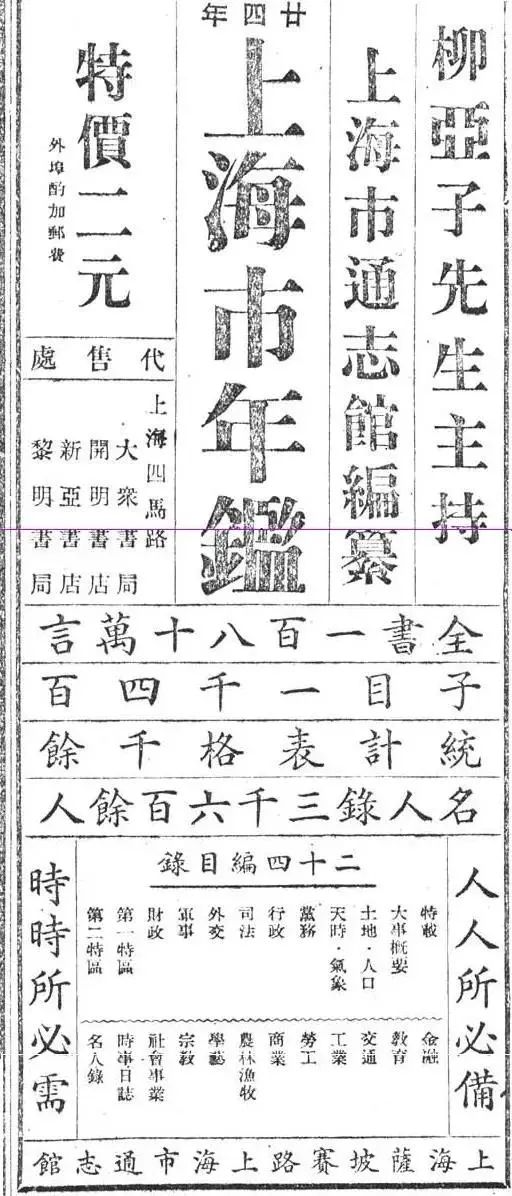 柳亞子先生主持
上海市通志館編纂
廿四年
上海市年鑑
特價二元
外埠酌加郵費
代售處
上海四馬路
大衆書局
開明書店
新亞書店
黎明書局
全書一百八十萬言
子目一千四百
統計表格千餘
名人錄三千六百餘人
人人所必備
二十四編目錄
特載
大事概要
土地·人口
天時·氣象
黨務
行政
司法
外交
軍事
財政
第一特區
第二特區
金融
教育
交通
工業
勞工
商業
農林漁牧
學藝
宗教
社會事業
時事日誌
名人錄
時時所必需
上海薩坡賽路上海市通志館